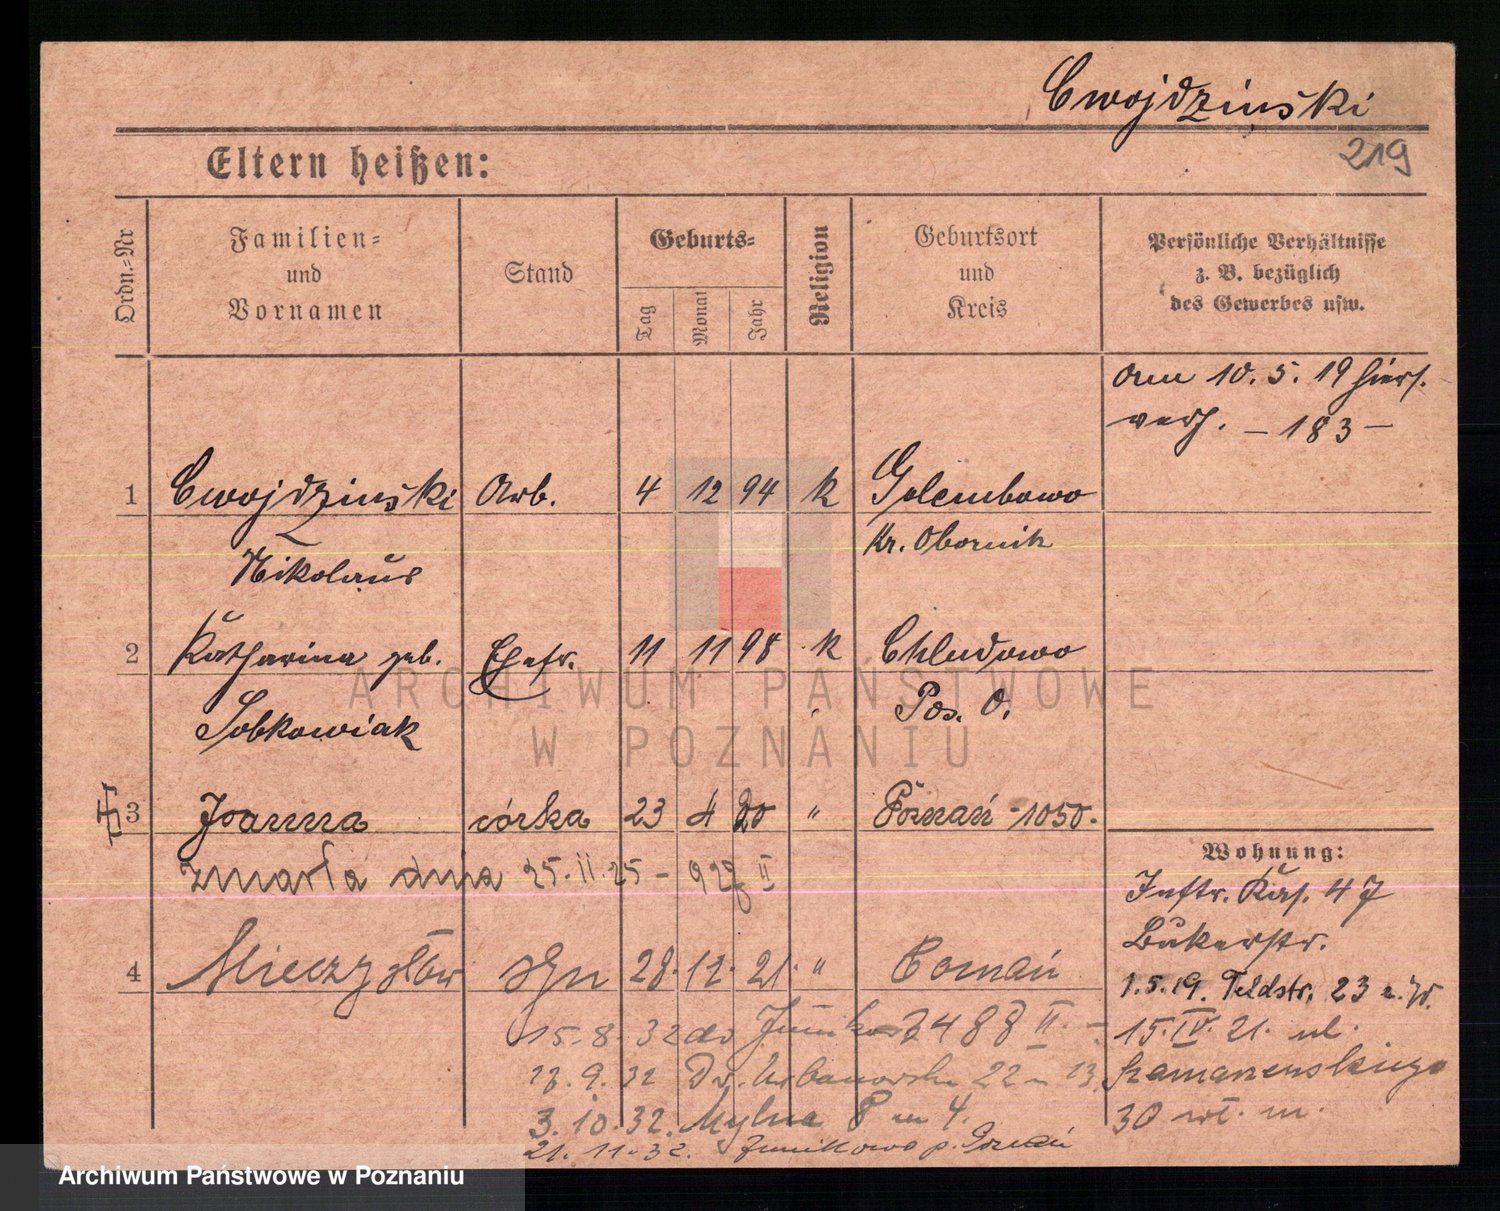 Cwojdziński
219
Eltern heißen:
Ordn.-Nr
Familien-
und
Vornamen
Stand
Geburts-
Tag
Monat
Jahr
Religion
Geburtsort
und
Kreis
Persönliche Verhältnisse
z. B. bezüglich
des Gewerbes usw.
am 10. 5. 19 hiers.
verh. – 183 –
1 Cwojdziński Arb. 4 12 94 k Golembowo
Nikolaus Kr. Obornik
2 Katharina geb. Ehefr. 11 11 98 k Chludowo
Sobkowiak Pos. O.
3 Joanna córka 23 4 20 " Poznań - 1050.
zmarła dnia 25. II. 25 – 929 II
4 Mieczysław syn 28. 12. 21. " Poznań
15. 8. 32 do 2488 II. –
13. 9. 32 Dr. Urbanowska 22 m 13
3. 10. 32. Mylna 8 m 4.
21. 11. 32. Junikowo p. Poznań
Wohnung:
Inftr. Kas. 47
Bukerstr.
1. 5. 19. Feldstr. 23
15. IV. 21. ul.
Szamarzewskiego
30
ARCHIWUM PAŃSTWOWE
W POZNANIU
Archiwum Państwowe w Poznaniu